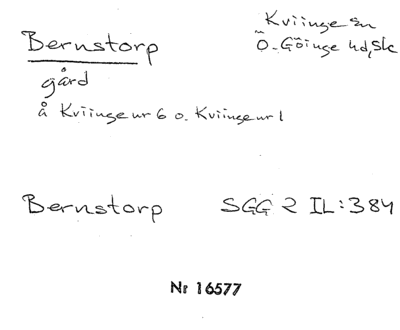 Bernstorp
Kviinge sn
Ö. Göinge hd, Sk
gård
å Kviinge nr 6 o. Kviinge nr 1
Bernstorp SGG 2 II:384
Nr 16577